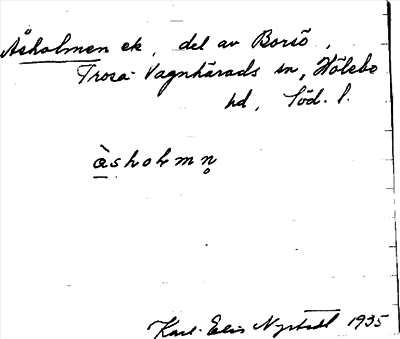 Åsholmen ek, del av Borsö,
Trosa-Vagnhärads sn, Hölebo
hd, Söd. l.
å̲sholmn̥
Karl-Elis Nystedt 1935